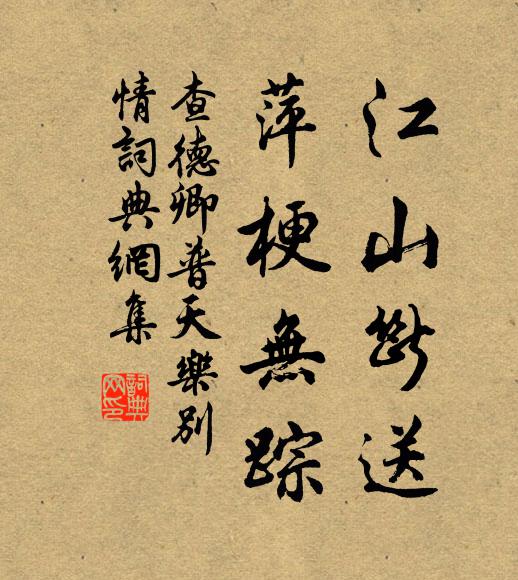 江山斷送
萍梗無蹤
查德卿普天樂別
情詞典網集
詞典網印